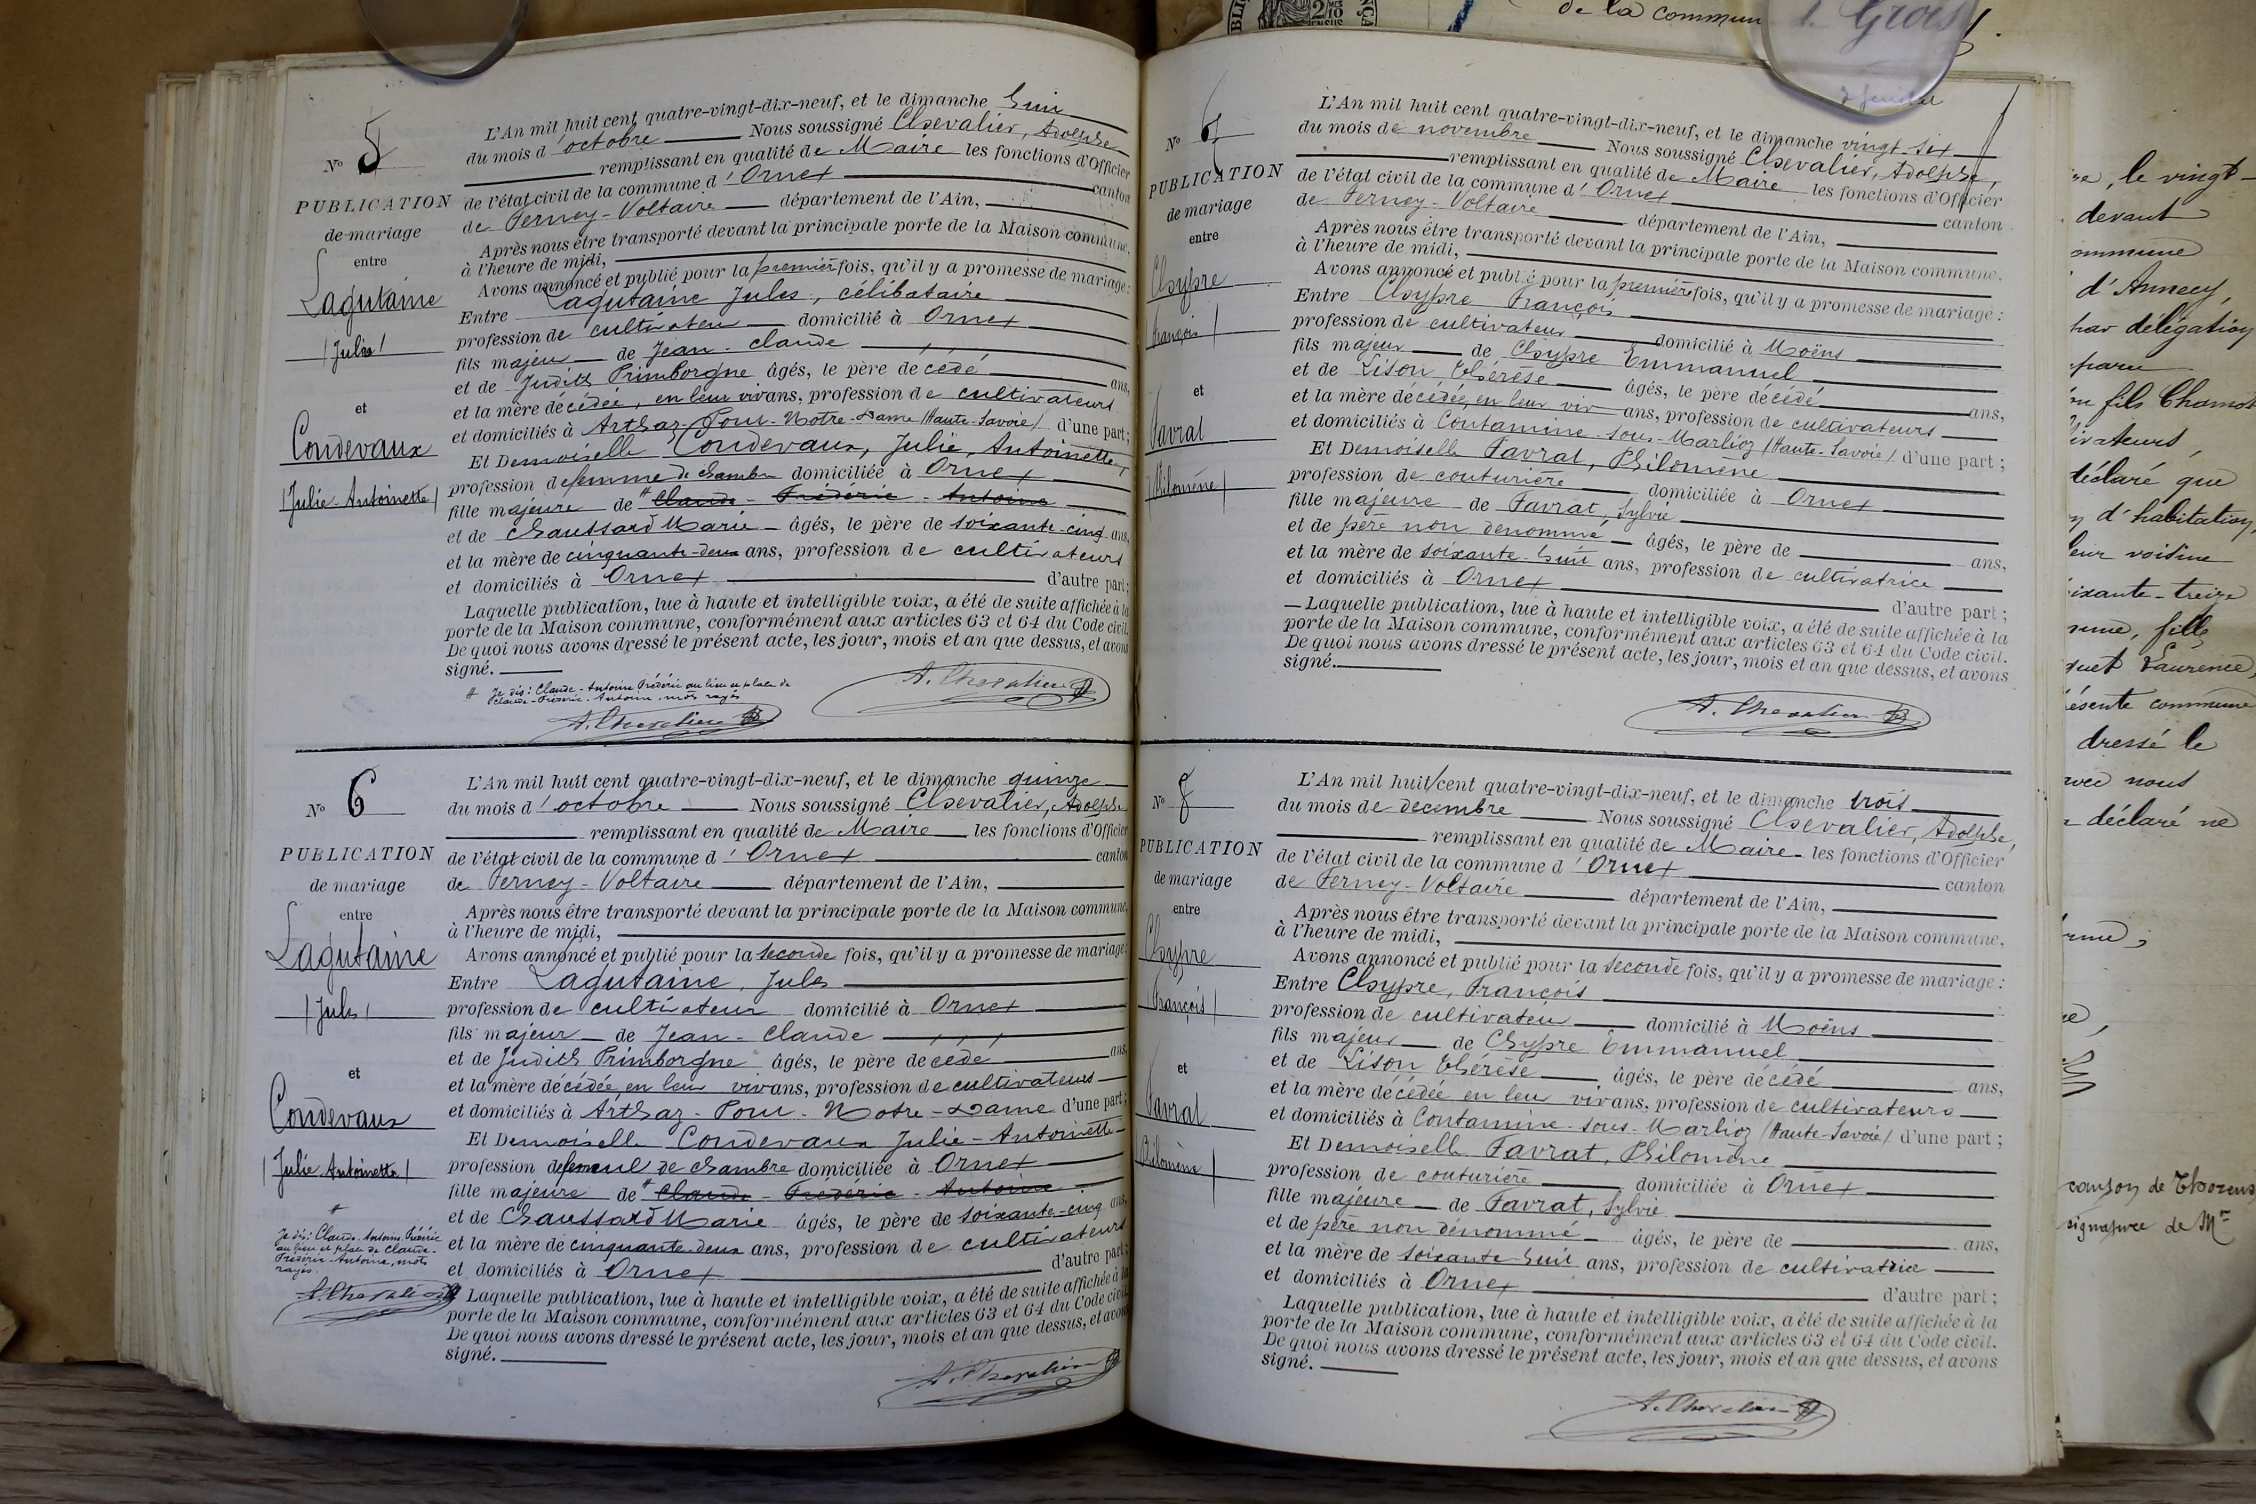 N° 5
PUBLICATION
de mariage
entre
Lagutaine
(Jules)
et
Condevaux
(Julie-Antoinette)
L'An mil huit cent quatre-vingt-dix-neuf, et le dimanche huit
du mois d'octobre Nous soussigné Chevalier, Adolphe
remplissant en qualité de Maire les fonctions d'Officier
de l'état civil de la commune d'Ornex canton
de Ferney-Voltaire département de l'Ain,
Après nous être transporté devant la principale porte de la Maison commune,
à l'heure de midi,
Avons annoncé et publié pour la première fois, qu'il y a promesse de mariage:
Entre Lagutaine Jules, célibataire
profession de cultivateur domicilié à Ornex
fils majeur de Jean-Claude
et de Judith Primborgne âgés, le père décédé ans,
et la mère décédée, en leur vivans, profession de cultivateurs
et domiciliés à Arthaz-Pont-Notre-Dame (Haute-Savoie) d'une part;
Et Demoiselle Condevaux, Julie, Antoinette,
profession de femme de chambre domiciliée à Ornex
fille majeure de # Claude-Frédéric-Antoine
et de Chaussard Marie âgés, le père de soixante-cinq ans,
et la mère de cinquante-deux ans, profession de cultivateurs
et domiciliés à Ornex d'autre part;
Laquelle publication, lue à haute et intelligible voix, a été de suite affichée à la
porte de la Maison commune, conformément aux articles 63 et 64 du Code civil.
De quoi nous avons dressé le présent acte, les jour, mois et an que dessus, et avons
signé.
# Je dis: Claude-Antoine Frédéric au lieu et place de
Claude-Frédéric-Antoine, mots rayés
A. Chevalier
A. Chevalier
N° 6
PUBLICATION
de mariage
entre
Lagutaine
(Jules)
et
Condevaux
(Julie Antoinette)
#
Je dis: Claude-Antoine Frédéric
au lieu et place de Claude-
Frédéric-Antoine, mots
rayés.
A. Chevalier
L'An mil huit cent quatre-vingt-dix-neuf, et le dimanche quinze
du mois d'octobre Nous soussigné Chevalier, Adolphe
remplissant en qualité de Maire les fonctions d'Officier
de l'état civil de la commune d'Ornex canton
de Ferney-Voltaire département de l'Ain,
Après nous être transporté devant la principale porte de la Maison commune,
à l'heure de midi,
Avons annoncé et publié pour la seconde fois, qu'il y a promesse de mariage:
Entre Lagutaine, Jules
profession de cultivateur domicilié à Ornex
fils majeur de Jean-Claude
et de Judith Primborgne âgés, le père décédé ans,
et la mère décédée en leur vivans, profession de cultivateurs
et domiciliés à Arthaz-Pont-Notre-Dame d'une part;
Et Demoiselle Condevaux Julie-Antoinette
profession de de chambre domiciliée à Ornex
fille majeure de # Claude-Frédéric-Antoine
et de Chaussard Marie âgés, le père de soixante-cinq ans,
et la mère de cinquante-deux ans, profession de cultivateurs
et domiciliés à Ornex d'autre part;
Laquelle publication, lue à haute et intelligible voix, a été de suite affichée à la
porte de la Maison commune, conformément aux articles 63 et 64 du Code civil.
De quoi nous avons dressé le présent acte, les jour, mois et an que dessus, et avons
signé.
A. Chevalier
N°
PUBLICATION
de mariage
entre
Chypre
(François)
et
Favrat
(Philomène)
L'An mil huit cent quatre-vingt-dix-neuf, et le dimanche vingt-six
du mois de novembre Nous soussigné Chevalier, Adolphe,
remplissant en qualité de Maire les fonctions d'Officier
de l'état civil de la commune d'Ornex canton
de Ferney-Voltaire département de l'Ain,
Après nous être transporté devant la principale porte de la Maison commune,
à l'heure de midi,
Avons annoncé et publié pour la première fois, qu'il y a promesse de mariage:
Entre Chypre François
profession de cultivateur domicilié à Moëns
fils majeur de Chypre Emmanuel
et de Lison Thérèse âgés, le père décédé ans,
et la mère décédée, en leur viv ans, profession de cultivateurs
et domiciliés à Contamine-sous-Marlioz (Haute-Savoie) d'une part;
Et Demoiselle Favrat, Philomène
profession de couturière domiciliée à Ornex
fille majeure de Favrat, Sylvie
et de père non dénommé âgés, le père de ans,
et la mère de soixante-huit ans, profession de cultivatrice
et domiciliés à Ornex d'autre part;
Laquelle publication, lue à haute et intelligible voix, a été de suite affichée à la
porte de la Maison commune, conformément aux articles 63 et 64 du Code civil.
De quoi nous avons dressé le présent acte, les jour, mois et an que dessus, et avons
signé.
A. Chevalier
N° 8
PUBLICATION
de mariage
entre
Chypre
(François)
et
Favrat
Philomène)
L'An mil huit cent quatre-vingt-dix-neuf, et le dimanche trois
du mois de décembre Nous soussigné Chevalier, Adolphe,
remplissant en qualité de Maire les fonctions d'Officier
de l'état civil de la commune d'Ornex canton
de Ferney-Voltaire département de l'Ain,
Après nous être transporté devant la principale porte de la Maison commune,
à l'heure de midi,
Avons annoncé et publié pour la seconde fois, qu'il y a promesse de mariage:
Entre Chypre, François
profession de cultivateur domicilié à Moëns
fils majeur de Chypre Emmanuel
et de Lison Thérèse âgés, le père décédé ans,
et la mère décédée en leur vivans, profession de cultivateurs
et domiciliés à Contamine-sous-Marlioz (Haute-Savoie) d'une part;
Et Demoiselle Favrat, Philomène
profession de couturière domiciliée à Ornex
fille majeure de Favrat, Sylvie
et de père non dénommé âgés, le père de ans,
et la mère de soixante-huit ans, profession de cultivatrice
et domiciliés à Ornex d'autre part;
Laquelle publication, lue à haute et intelligible voix, a été de suite affichée à la
porte de la Maison commune, conformément aux articles 63 et 64 du Code civil.
De quoi nous avons dressé le présent acte, les jour, mois et an que dessus, et avons
signé.
A. Chevalier
de la commun
, le vingt-
devant
ommune
d'Annecy,
par délégation
paru
fils Chamot
tivateurs,
déclaré que
d'habitation,
leur voisine
ixante-treize
fille
quet Laurence,
ésente commune
dressé le
avec nous
déclaré ne
de Thorens
signature de Mr